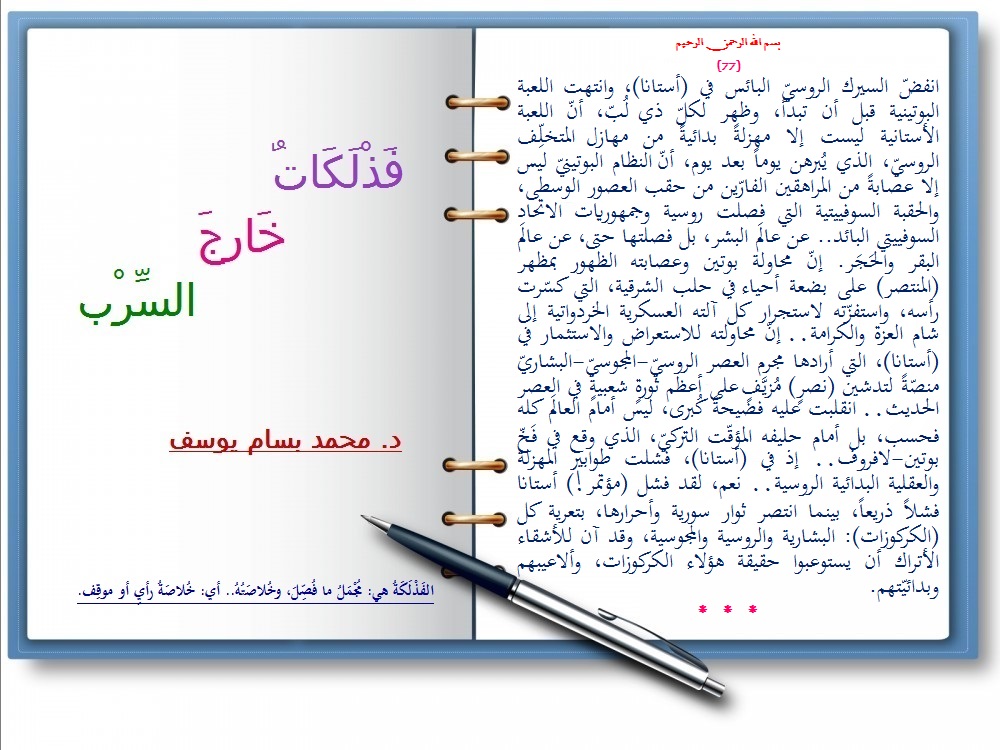 بسم الله الرحمن الرحيم
(77)
انفضّ السيرك الروسيّ البائس في (أستانا)، وانتهت اللعبة
البوتينية قبل أن تبدأ، وظهر لكلّ ذي لُبّ، أنّ اللعبة
الأستانية ليست إلا مهزلةً بدائيةً من مهازل المتخلِّف
الروسيّ، الذي يُبرهن يوماً بعد يوم، أنّ النظام البوتينيّ ليس
إلا عصابةً من المراهقين الفارّين من حقب العصور الوسطى،
والحقبة السوفييتية التي فصلت روسية وجمهوريات الاتحاد
السوفييتي البائد.. عن عالَم البشر، بل فصلتها حتى، عن عالَم
البقر والحَجَر. إنّ محاولة بوتين وعصابته الظهور بمظهر
(المنتصر) على بضعة أحياء في حلب الشرقية، التي كسّرت
رأسه، واستفزّته لاستجرار كل آلته العسكرية الخردواتية إلى
شام العزة والكرامة.. إنّ محاولته للاستعراض والاستثمار في
(أستانا)، التي أرادها مجرم العصر الروسيّ-المجوسيّ-البشاريّ
منصّةً لتدشين (نصرٍ) مُزيَّفٍ على أعظم ثورةٍ شعبيةٍ في العصر
الحديث.. انقلبت عليه فضيحةً كُبرى، ليس أمام العالَم كله
فحسب، بل أمام حليفه المؤقّت التركيّ، الذي وقع في فَخّ
بوتين-لافروف.. إذ في (أستانا)، فشلت طوابير المهزلة
والعقلية البدائية الروسية.. نعم، لقد فشل (مؤتمر!) أستانا
فشلاً ذريعاً، بينما انتصر ثوار سورية وأحرارها، بتعرية كل
(الكركوزات): البشارية والروسية والمجوسية، وقد آن للأشقاء
الأتراك أن يستوعبوا حقيقة هؤلاء الكركوزات، وألاعيبهم
وبدائيّتهم.
* * *
فَذْلَكَاتٌ
خَارجَ
السِّرْب
د. محمد بسام يوسف
الفَذْلَكَةُ هي: مُجْمَلُ ما فُصِّلَ، وخُلاصَتُهُ.. أي: خُلاصَةُ رأيٍ أو موقِف.